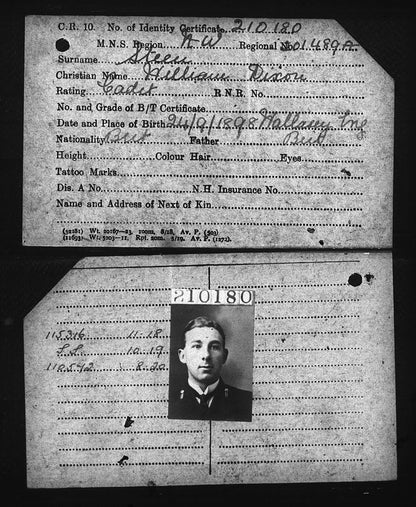 C.R. 10. No. of Identity Certificate 210180
M.N.S. Region N.W. Regional No. 01489A
Surname Steen
Christian Name William Dixon
Rating Cadet R.N.R. No.
No. and Grade of B/T Certificate
Date and Place of Birth 24/9/1898 Wallasey Eng
Nationality Brit Father Brit
Height Colour Hair Eyes
Tattoo Marks
Dis. A No. N.H. Insurance No.
Name and Address of Next of Kin
Wt. 20167—23. 100m. 8/18. Av. P. (503)
Wt. 5203—11. Rpt. 20m. 5/19. Av. P. (1272).
210180
115316 11.18
10.19
110592 8.20